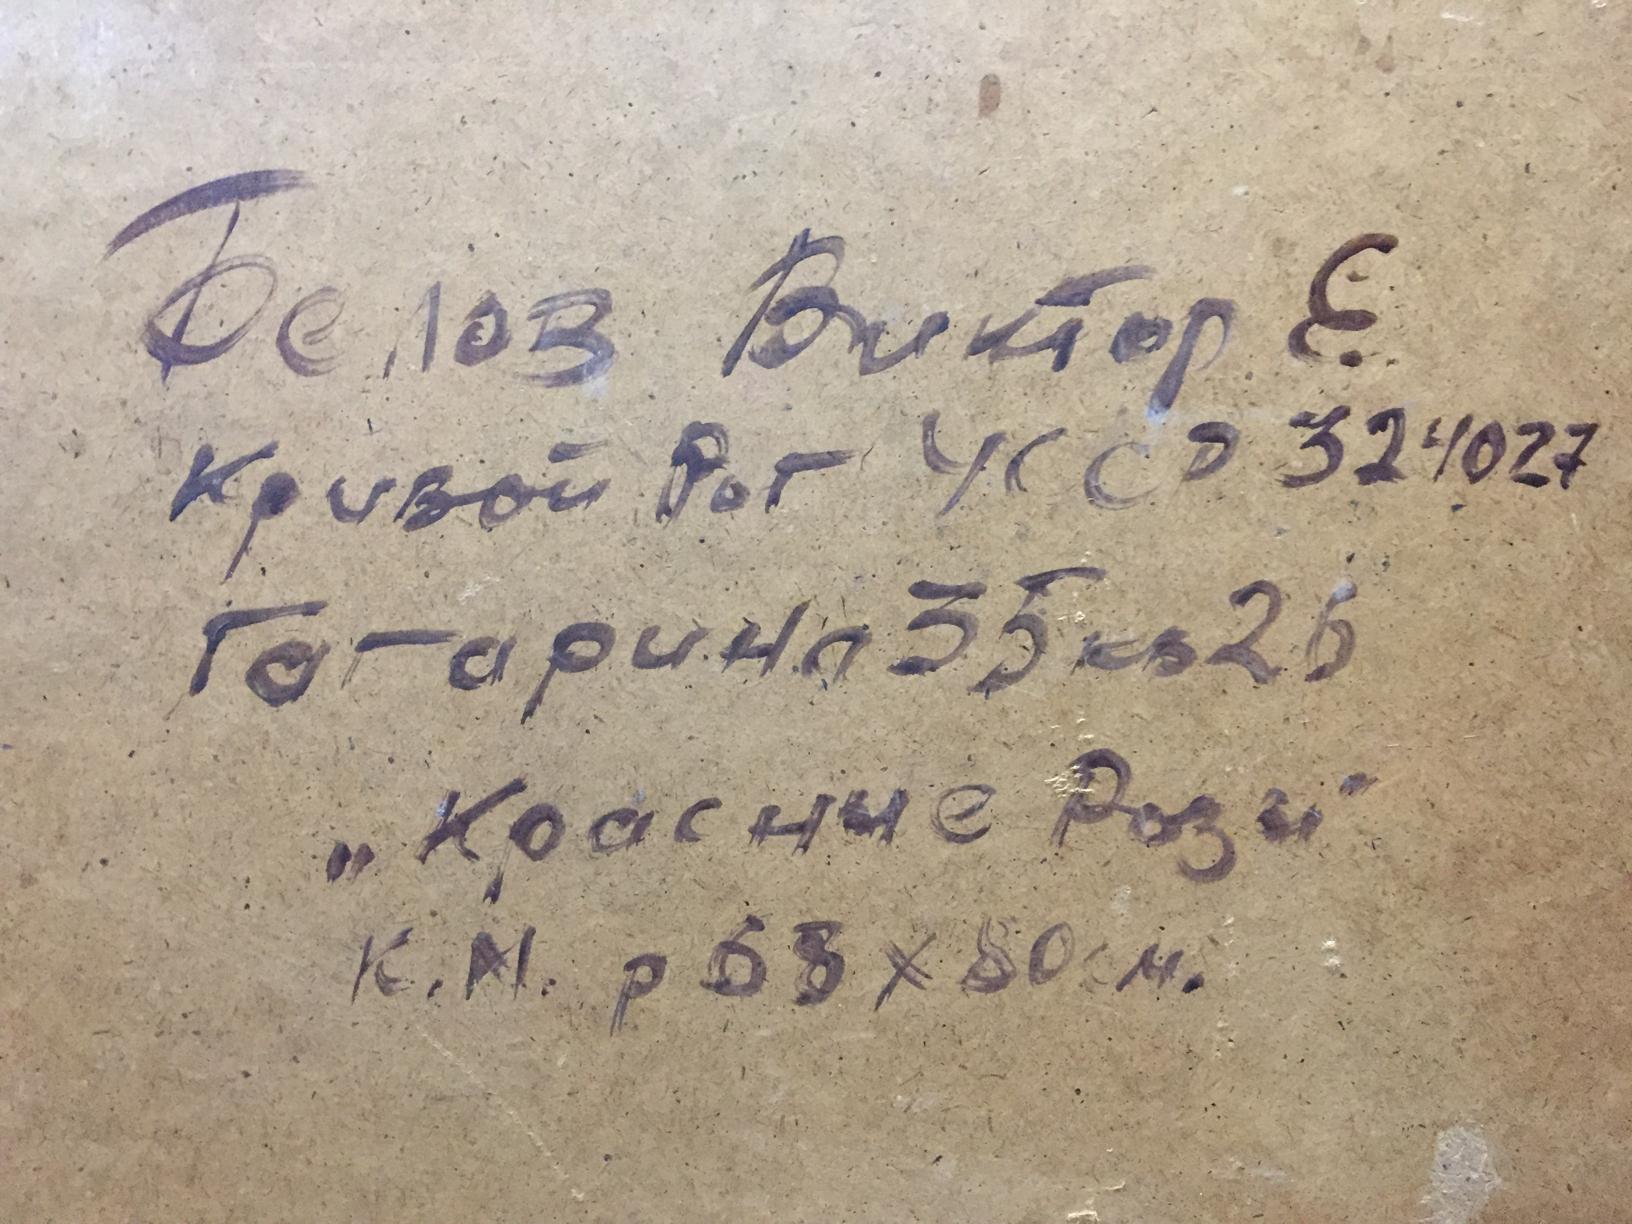 Белов Виктор Е.
Кривой Рог УССР 324027
Гагарина 35 кв 26
„Красние Рози"
К.М. р 68 х 80 см.